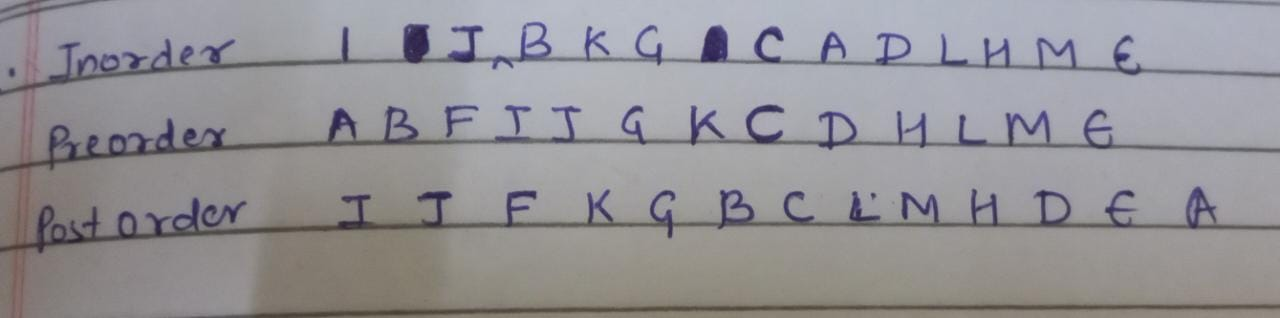 . Inorder I J ^ B K G C A D L H M E
Preorder A B F I J G K C D H L M E
Post order I J F K G B C L M H D E A